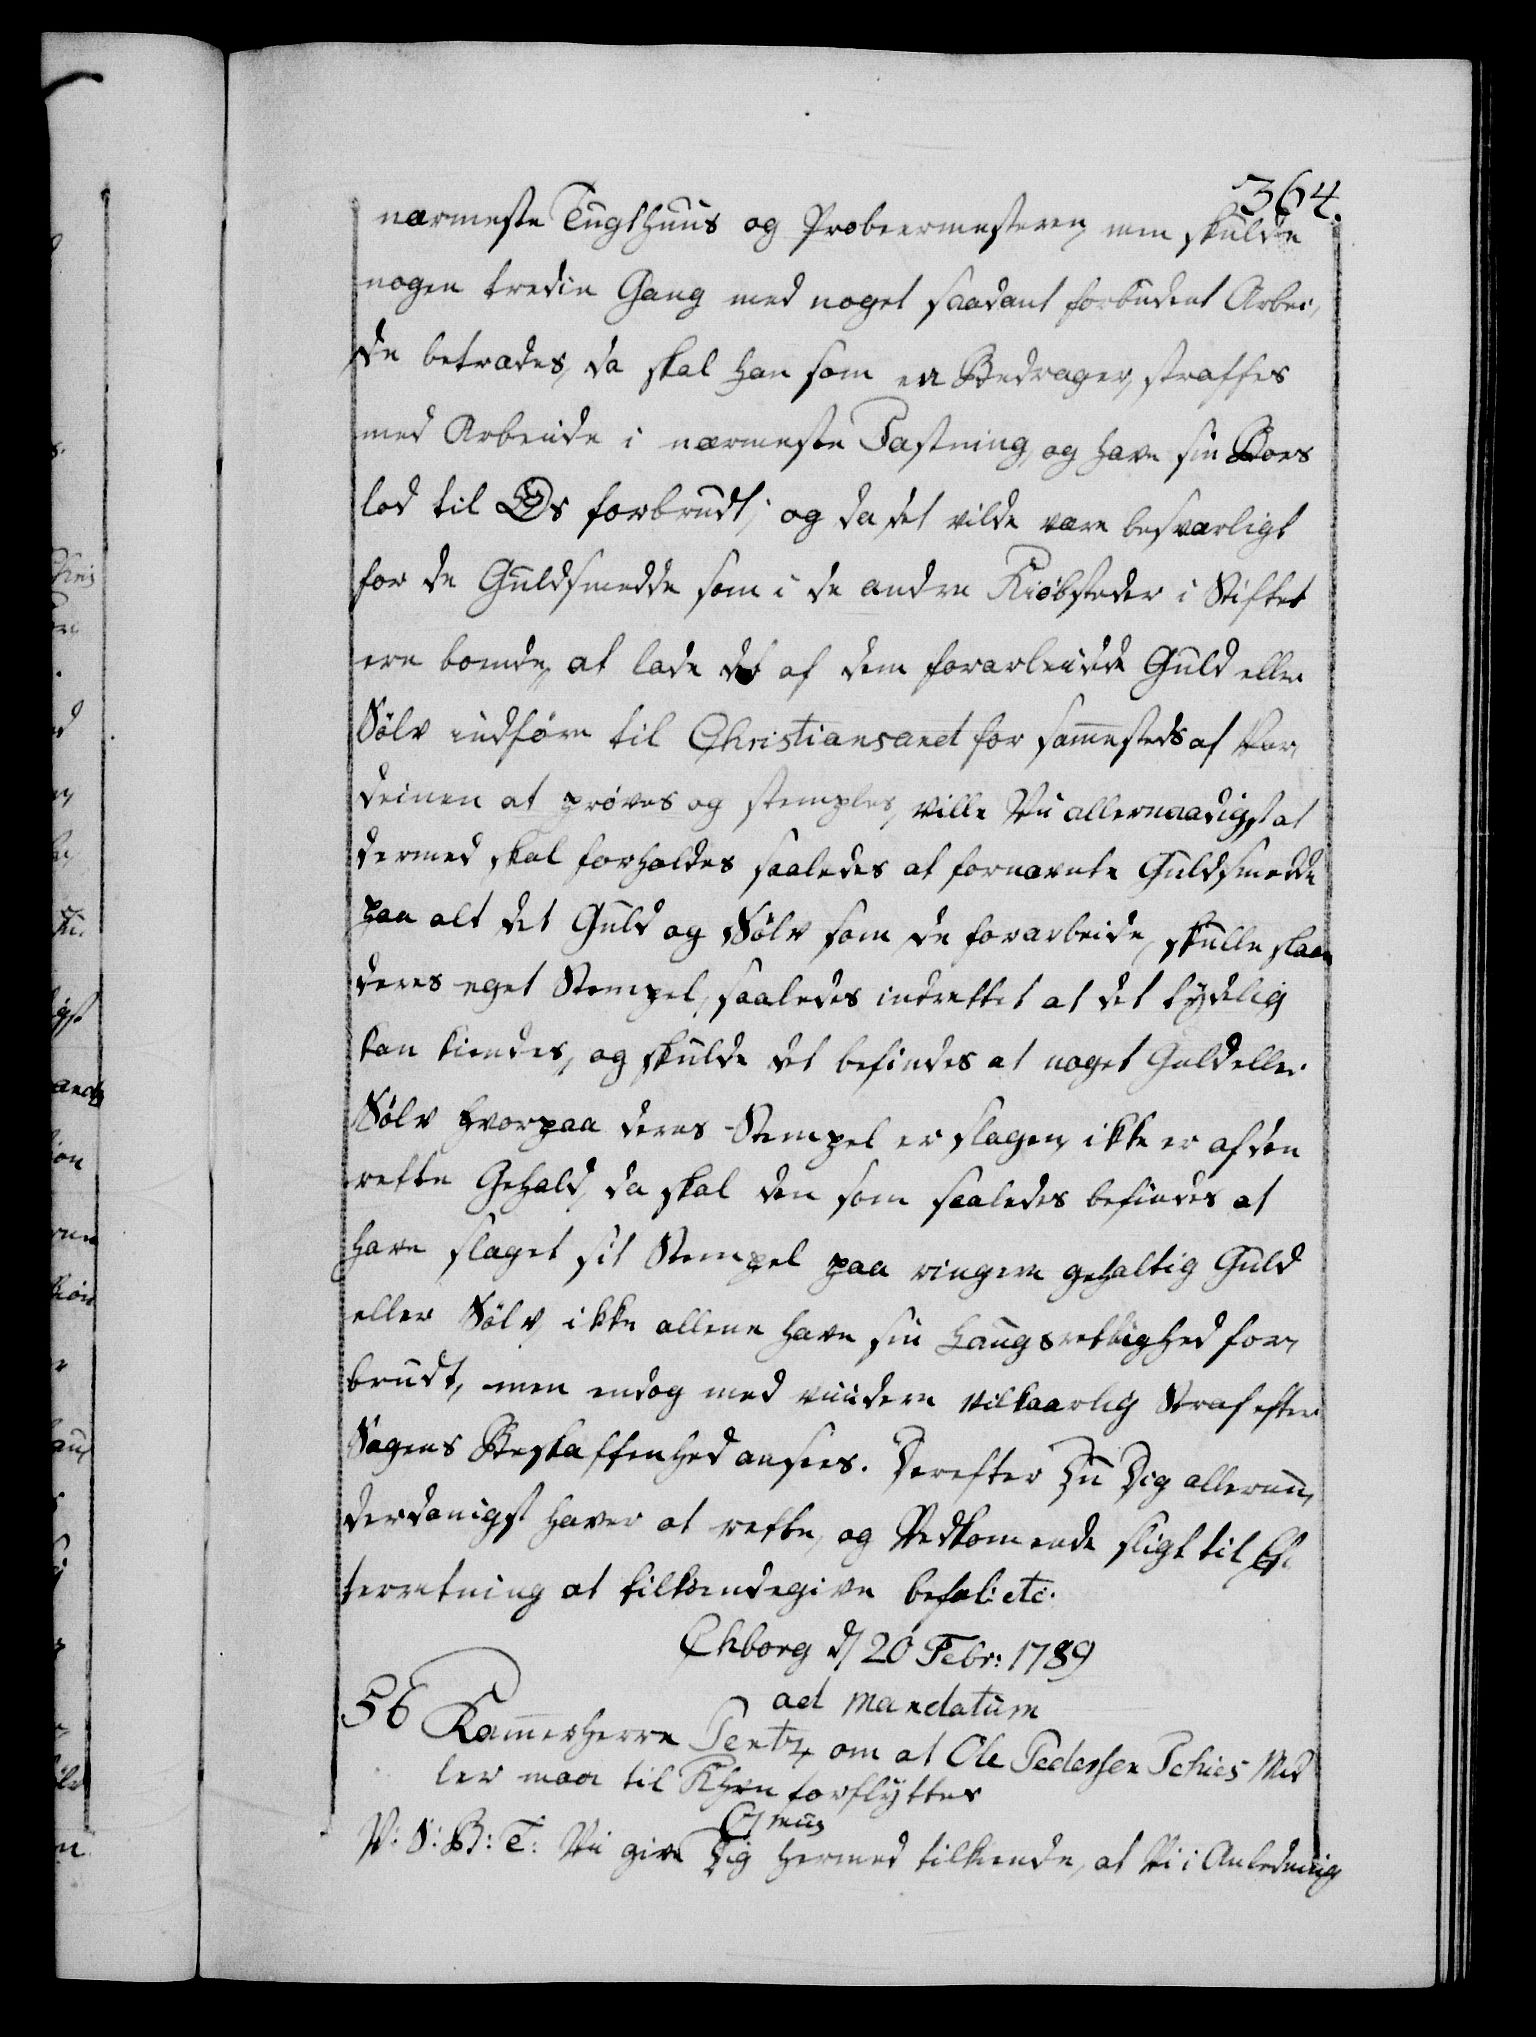 364.
nærmeste Tugthuus og Probeermesteren, men skulde
nogen tredie Gang med noget saadant forbudent Arbei,
de betrædes, da skal han som en Bedrager, straffes
med Arbeide i nærmeste Fæstning, og have sin Boes
lod til Os forbrudt; og da det vilde være besværligt
for de Guldsmedde som i de andre Kiøbstæder i Stiftet
ere boende, at lade det af dem forarbeidede Guld eller
Sølv indføre til Christiansand for sammesteds af Var,
deinen at prøves og stemples, ville Vii allernaadigst at
dermed skal forholdes saaledes at fornævnte Guldsmedde
paa alt det Guld og Sølv som de forarbeide, skulle slaae
deres eget Stempel, saaledes indrettet at det tydelig
kan kiendes, og skulde det befindes at noget Guld eller
Sølv hvorpaa deres Stempel er slagen, ikke er af den
rette Gehald, da skal den som saaledes befindes at
have slaget sit Stempel paa ringere gehaltig Guld
eller Sølv, ikke allene have sin Laugsrettighed for,
brudt, men endog med viidere vilkaarlig Straf efter
Sagens Beskaffenhed ansees. Derefter Du Dig allerun,
derdanigst haver at rette, og Vedkommende sligt til Ef,
terretning at tilkiendegive befal: etc.
Chborg d/ 20 Febr: 1789
ad mandatum
56 Kammerherre Pentz, om at Ole Pedersen Schies Mid
ler maa til Khvn forflyttes
V: S: B: T: Vii give Dig hermed tilkiende, at Vi i Anledning